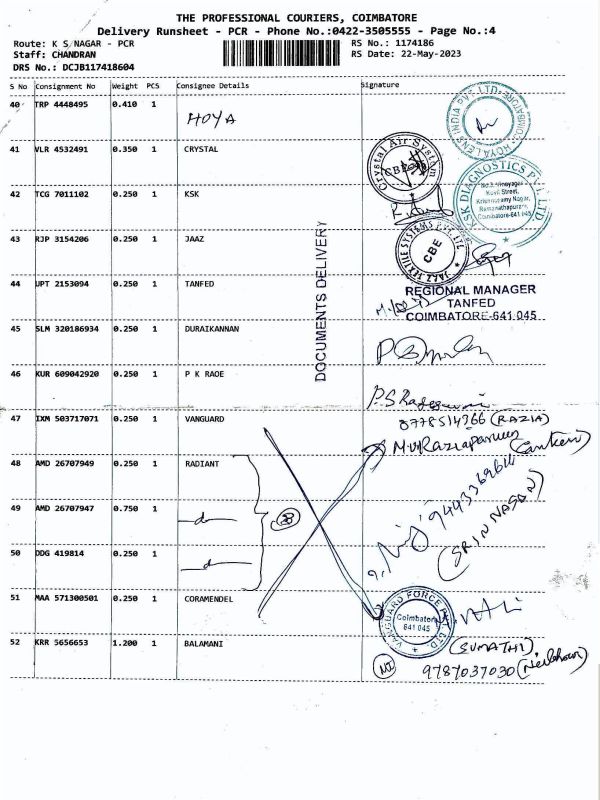 THE PROFESSIONAL COURIERS, COIMBATORE
Delivery Runsheet - PCR - Phone No.:0422-3505555 - Page No.:4
Route: K S NAGAR - PCR
Staff: CHANDRAN
DRS No.: DCJB117418604
RS No.: 1174186
RS Date: 22-May-2023
S No Consignment No Weight PCS Consignee Details Signature
40 TRP 4448495 0.410 1 HOYA
41 VLR 4532491 0.350 1 CRYSTAL
42 TCG 7011102 0.250 1 KSK
43 RJP 3154206 0.250 1 JAAZ
44 UPT 2153094 0.250 1 TANFED
45 SLM 320186934 0.250 1 DURAIKANNAN
46 KUR 609042920 0.250 1 P K RAOE
47 IXM 503717071 0.250 1 VANGUARD
48 AMD 26707949 0.250 1 RADIANT
49 AMD 26707947 0.750 1
50 DDG 419814 0.250 1
51 MAA 571300501 0.250 1 COROMENDEL
52 KRR 5656653 1.200 1 BALAMANI
DOCUMENTS DELIVERY
HOYA LENS INDIA PVT. LTD.
Crystal Air System
CBE
KSK DIAGNOSTICS PVT. LTD.
No.3, Vinayagar
Kovil Street,
Krishnasamy Nagar,
Ramanathapuram,
Coimbatore-641 045
JAAZ TEXTILE SYSTEMS PVT. LTD
CBE
REGIONAL MANAGER
TANFED
COIMBATORE-641 045
(RAZIA)
(SRINIVASAN)
VANGUARD FORCE PVT. LTD.
Coimbatore
641 045
(SUMATHI)
9787037030